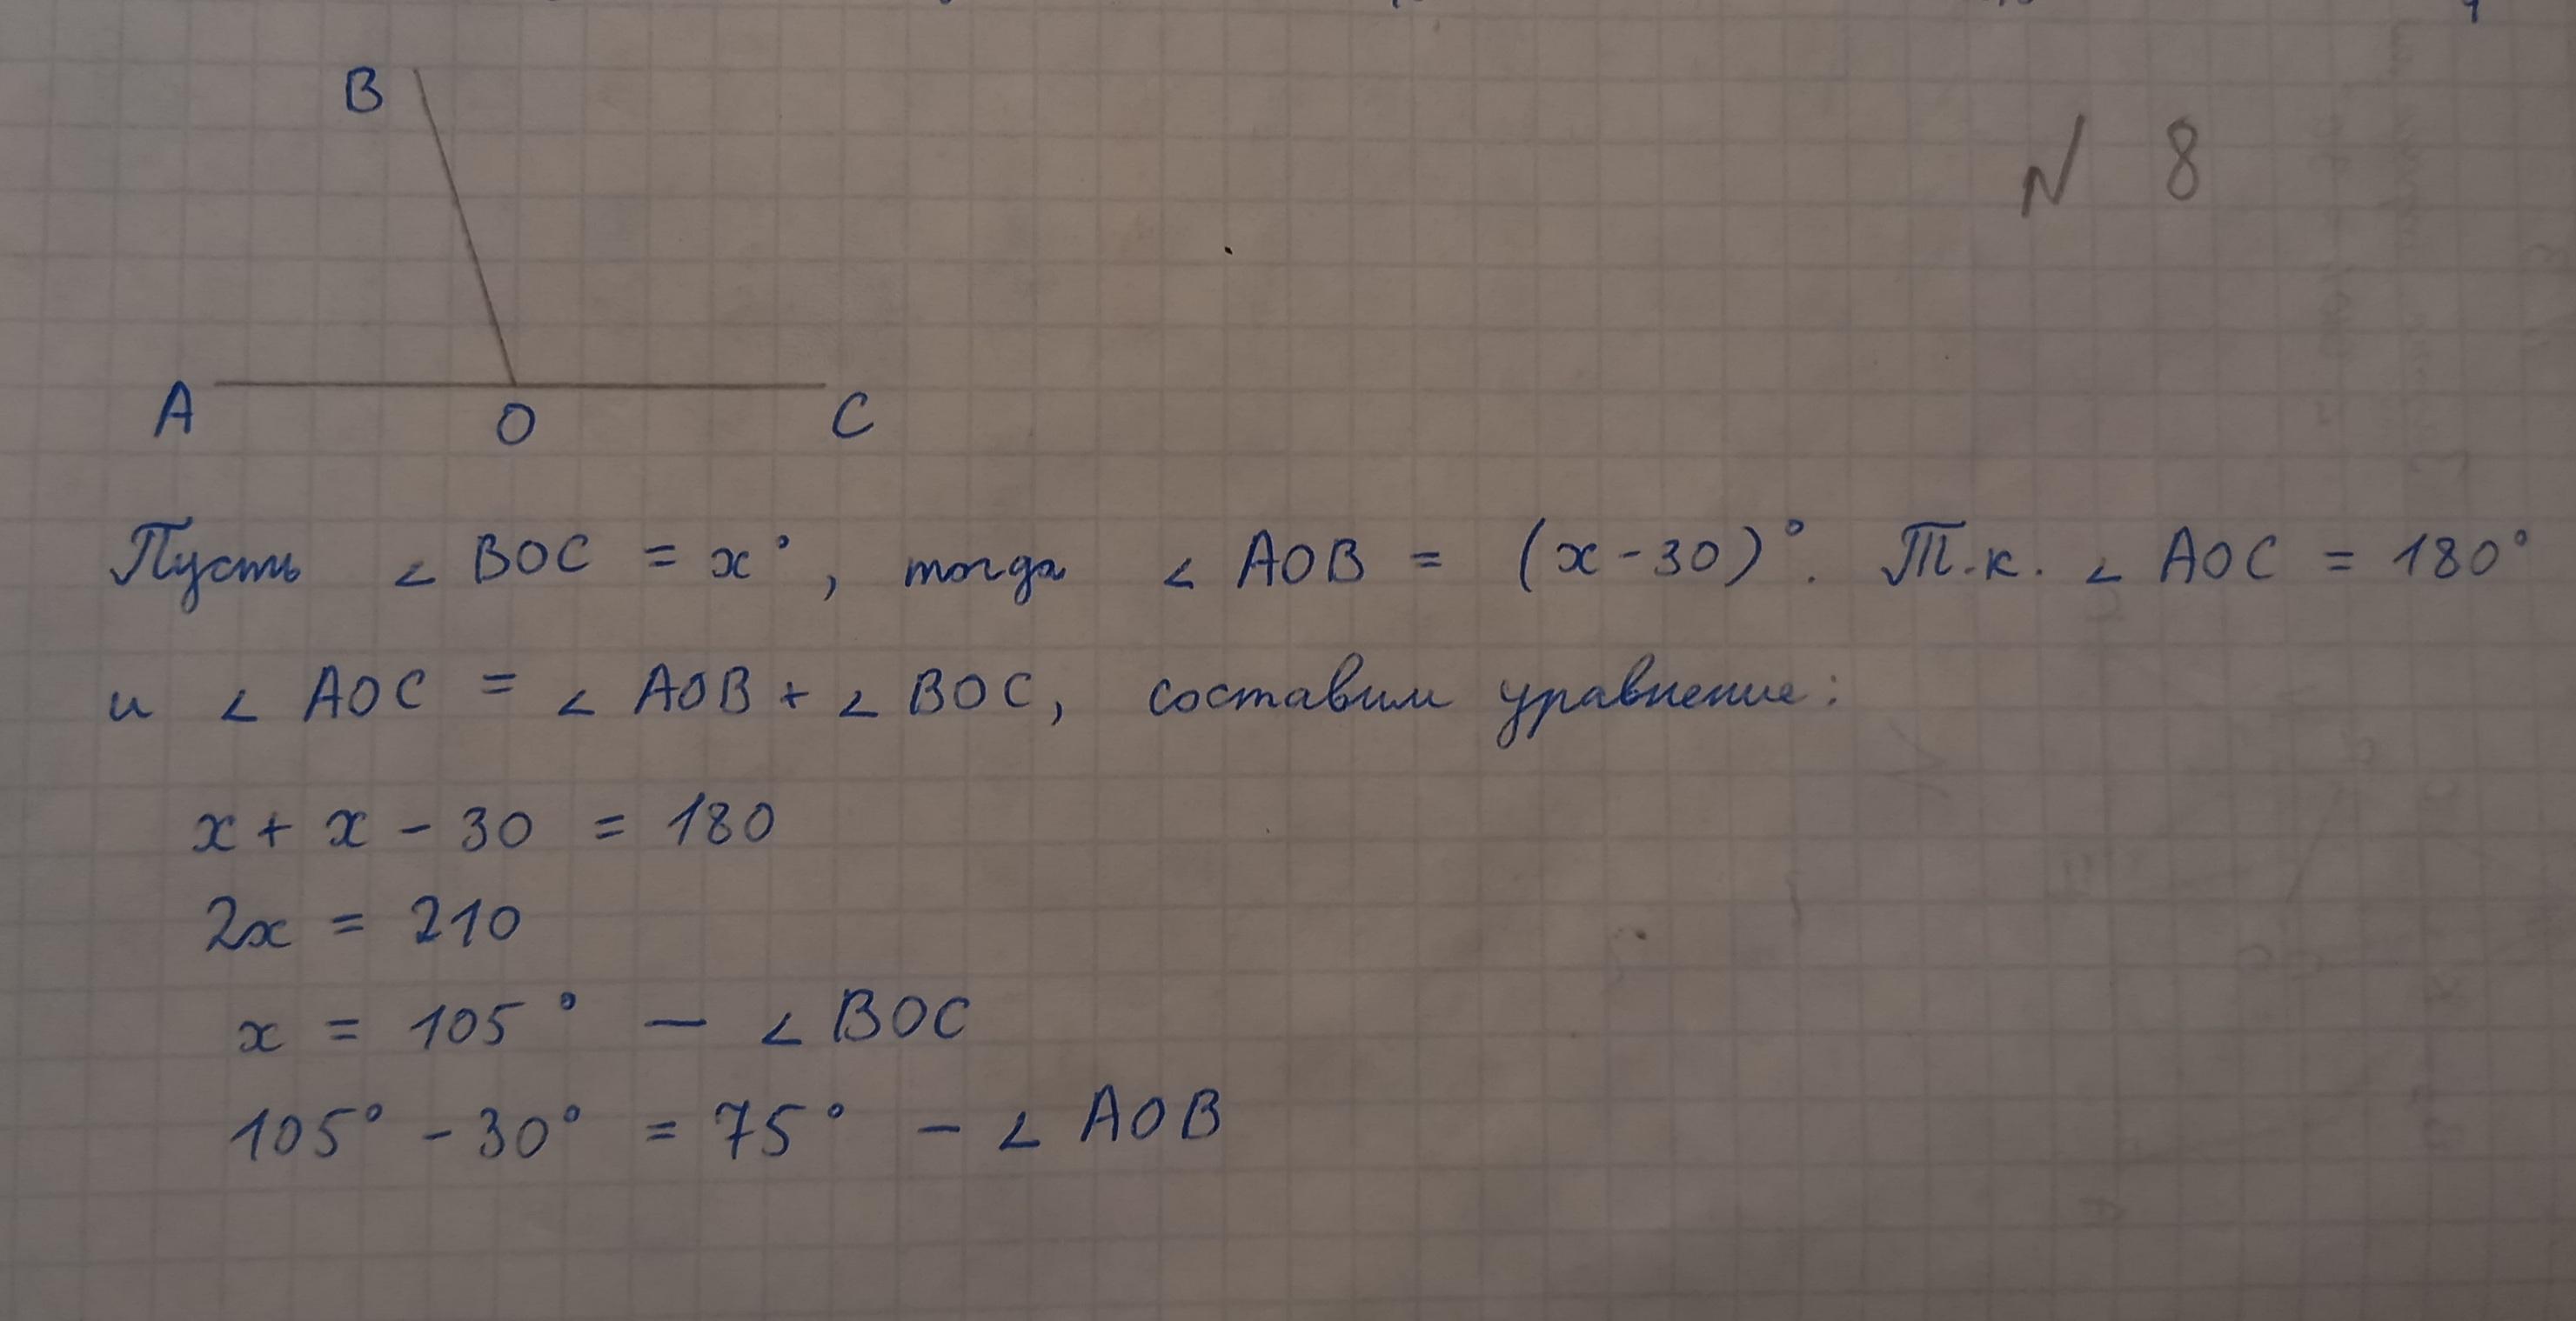 B
N 8
A O C
Пусть ∠ BOC = x°, тогда ∠ AOB = (x-30)°. Т.к. ∠ AOC = 180°
и ∠ AOC = ∠ AOB + ∠ BOC, составим уравнение:
x + x - 30 = 180
2x = 210
x = 105° — ∠ BOC
105° - 30° = 75° - ∠ AOB